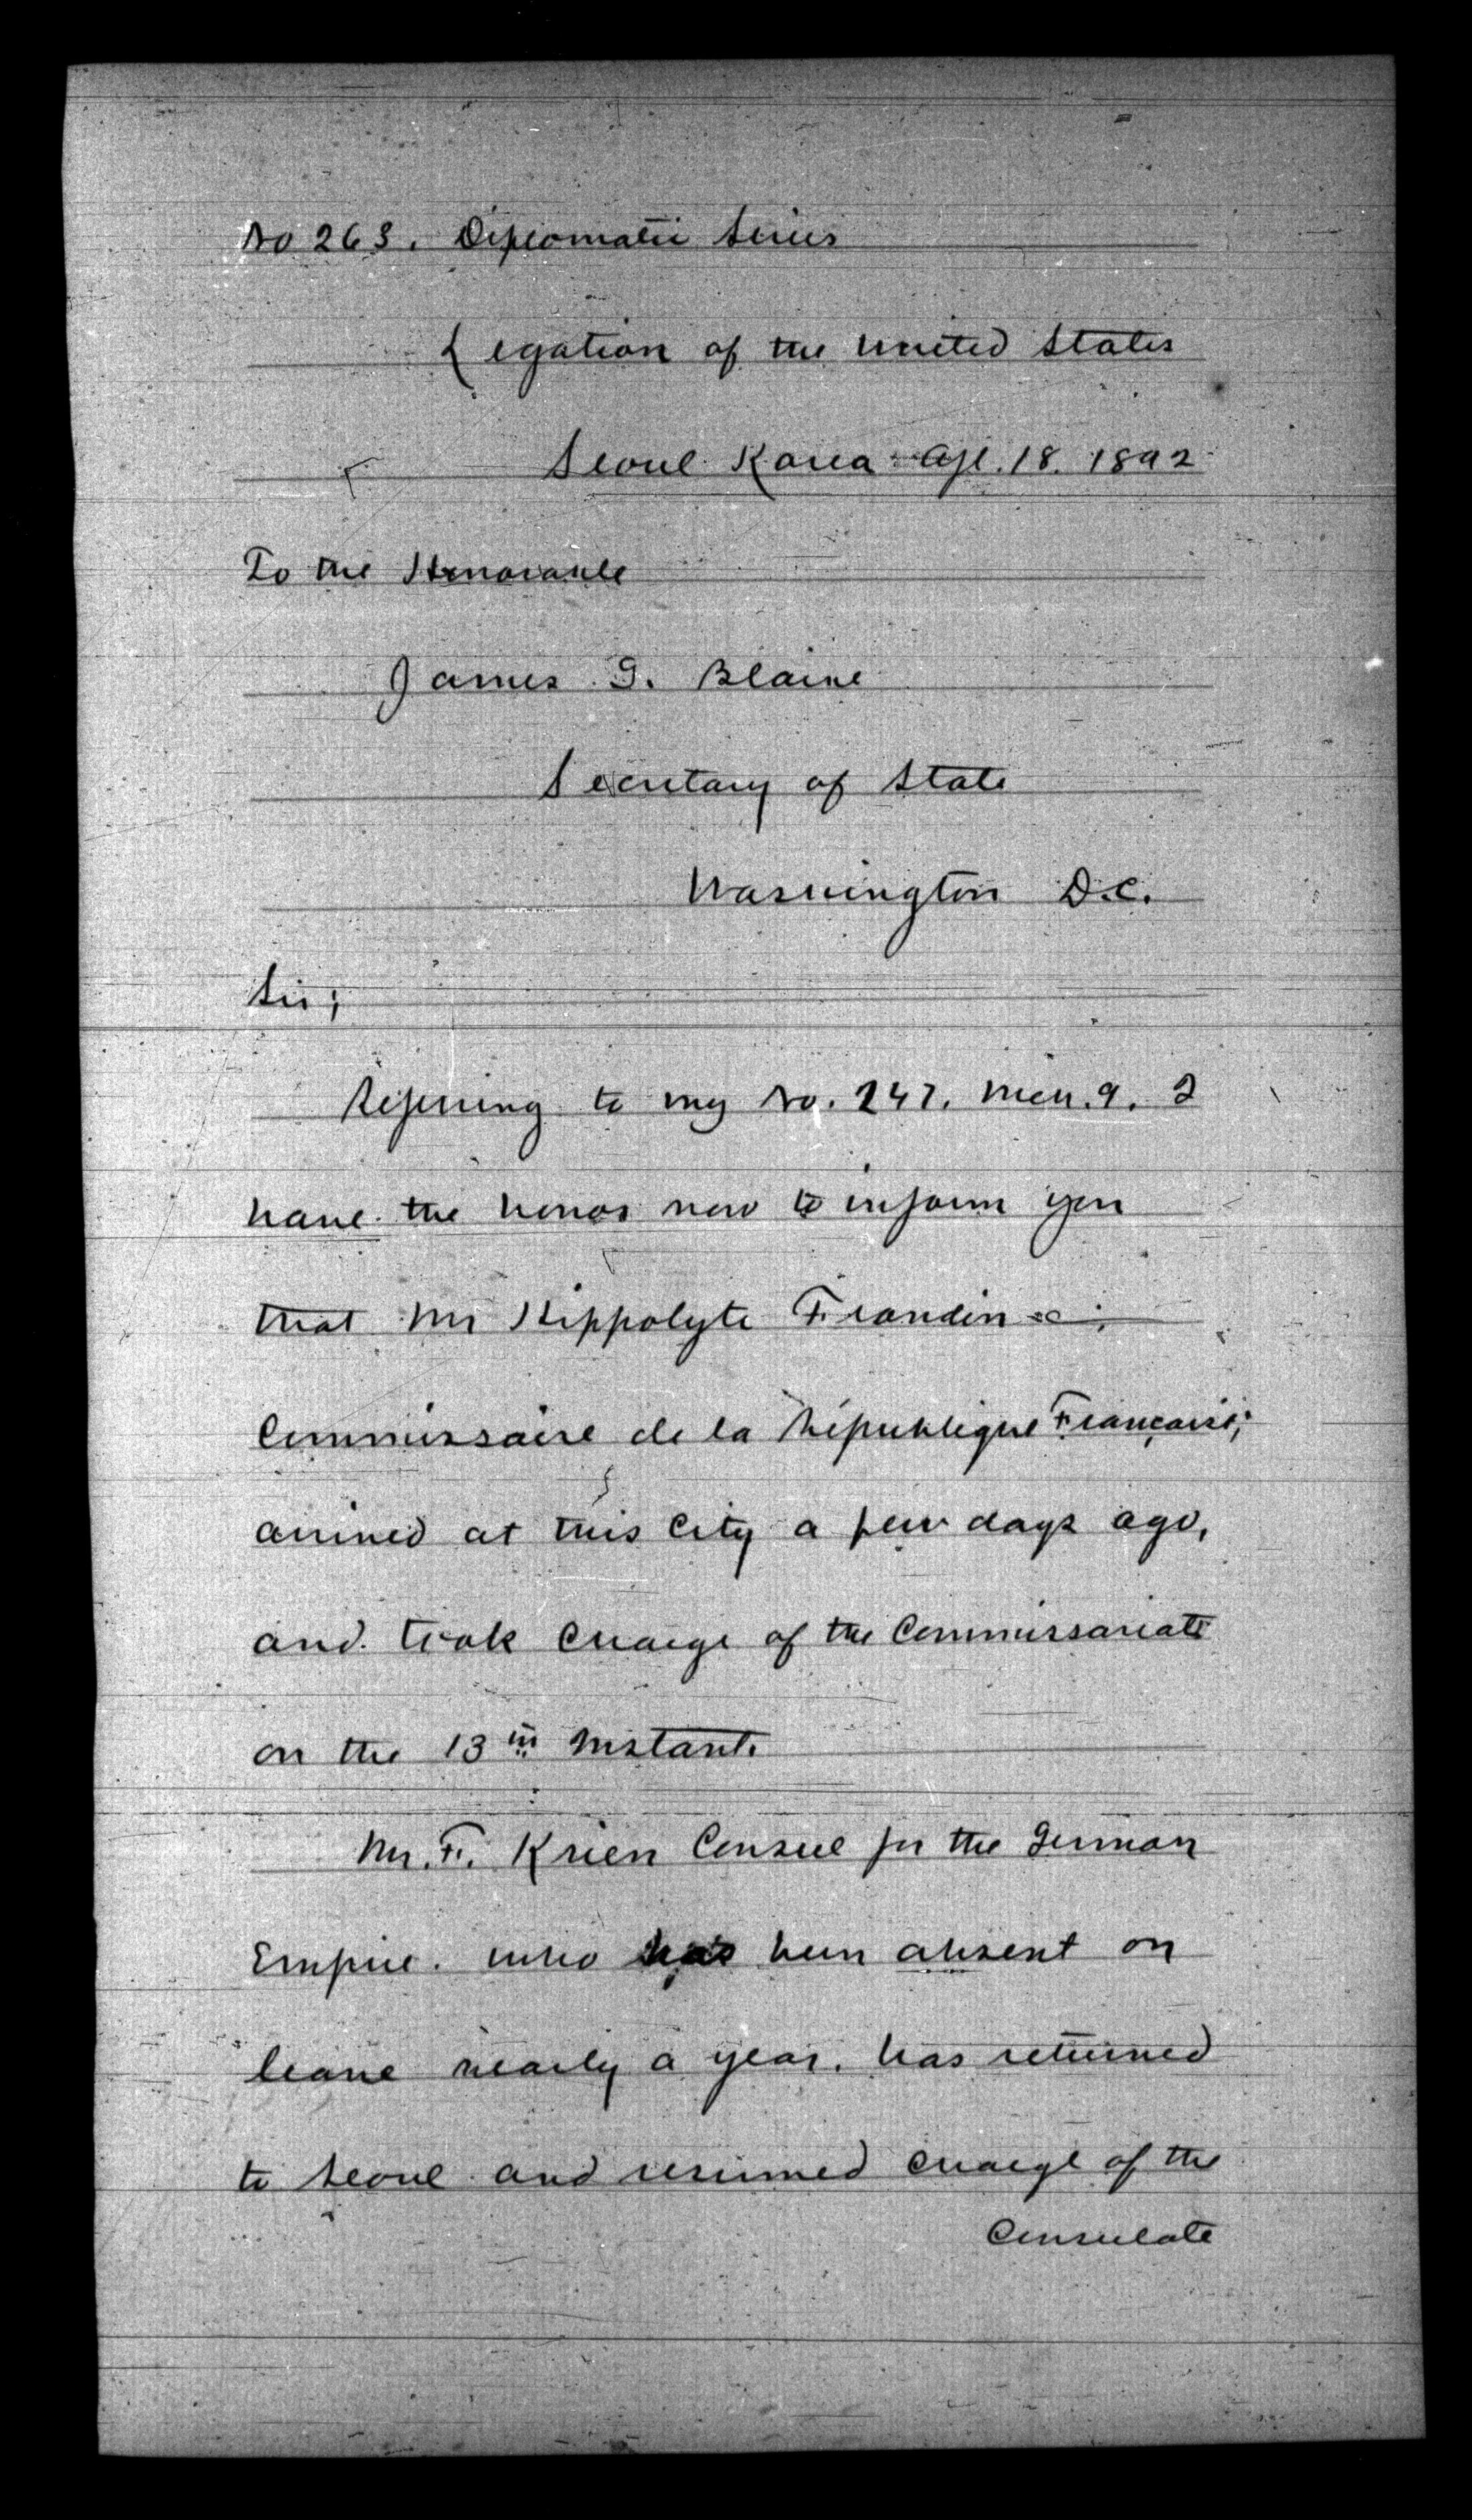 No 263. Diplomatic Series
Legation of the United States
Seoul Korea Apl. 18. 1892
To the Honorable
James G. Blaine
Secretary of State
Washington D.C.
Sir;
Referring to my No. 247. Mch. 9. I
have the honor now to inform you
that Mr Hippolyte Frandin
Commissaire de la République Française;
arrived at this City a few days ago,
and took charge of the Commissariate
on the 13th Instant.
Mr. F. Krien Consul for the German
Empire. who has been absent on
leave nearly a year. has returned
to Seoul and resumed charge of the
Consulate